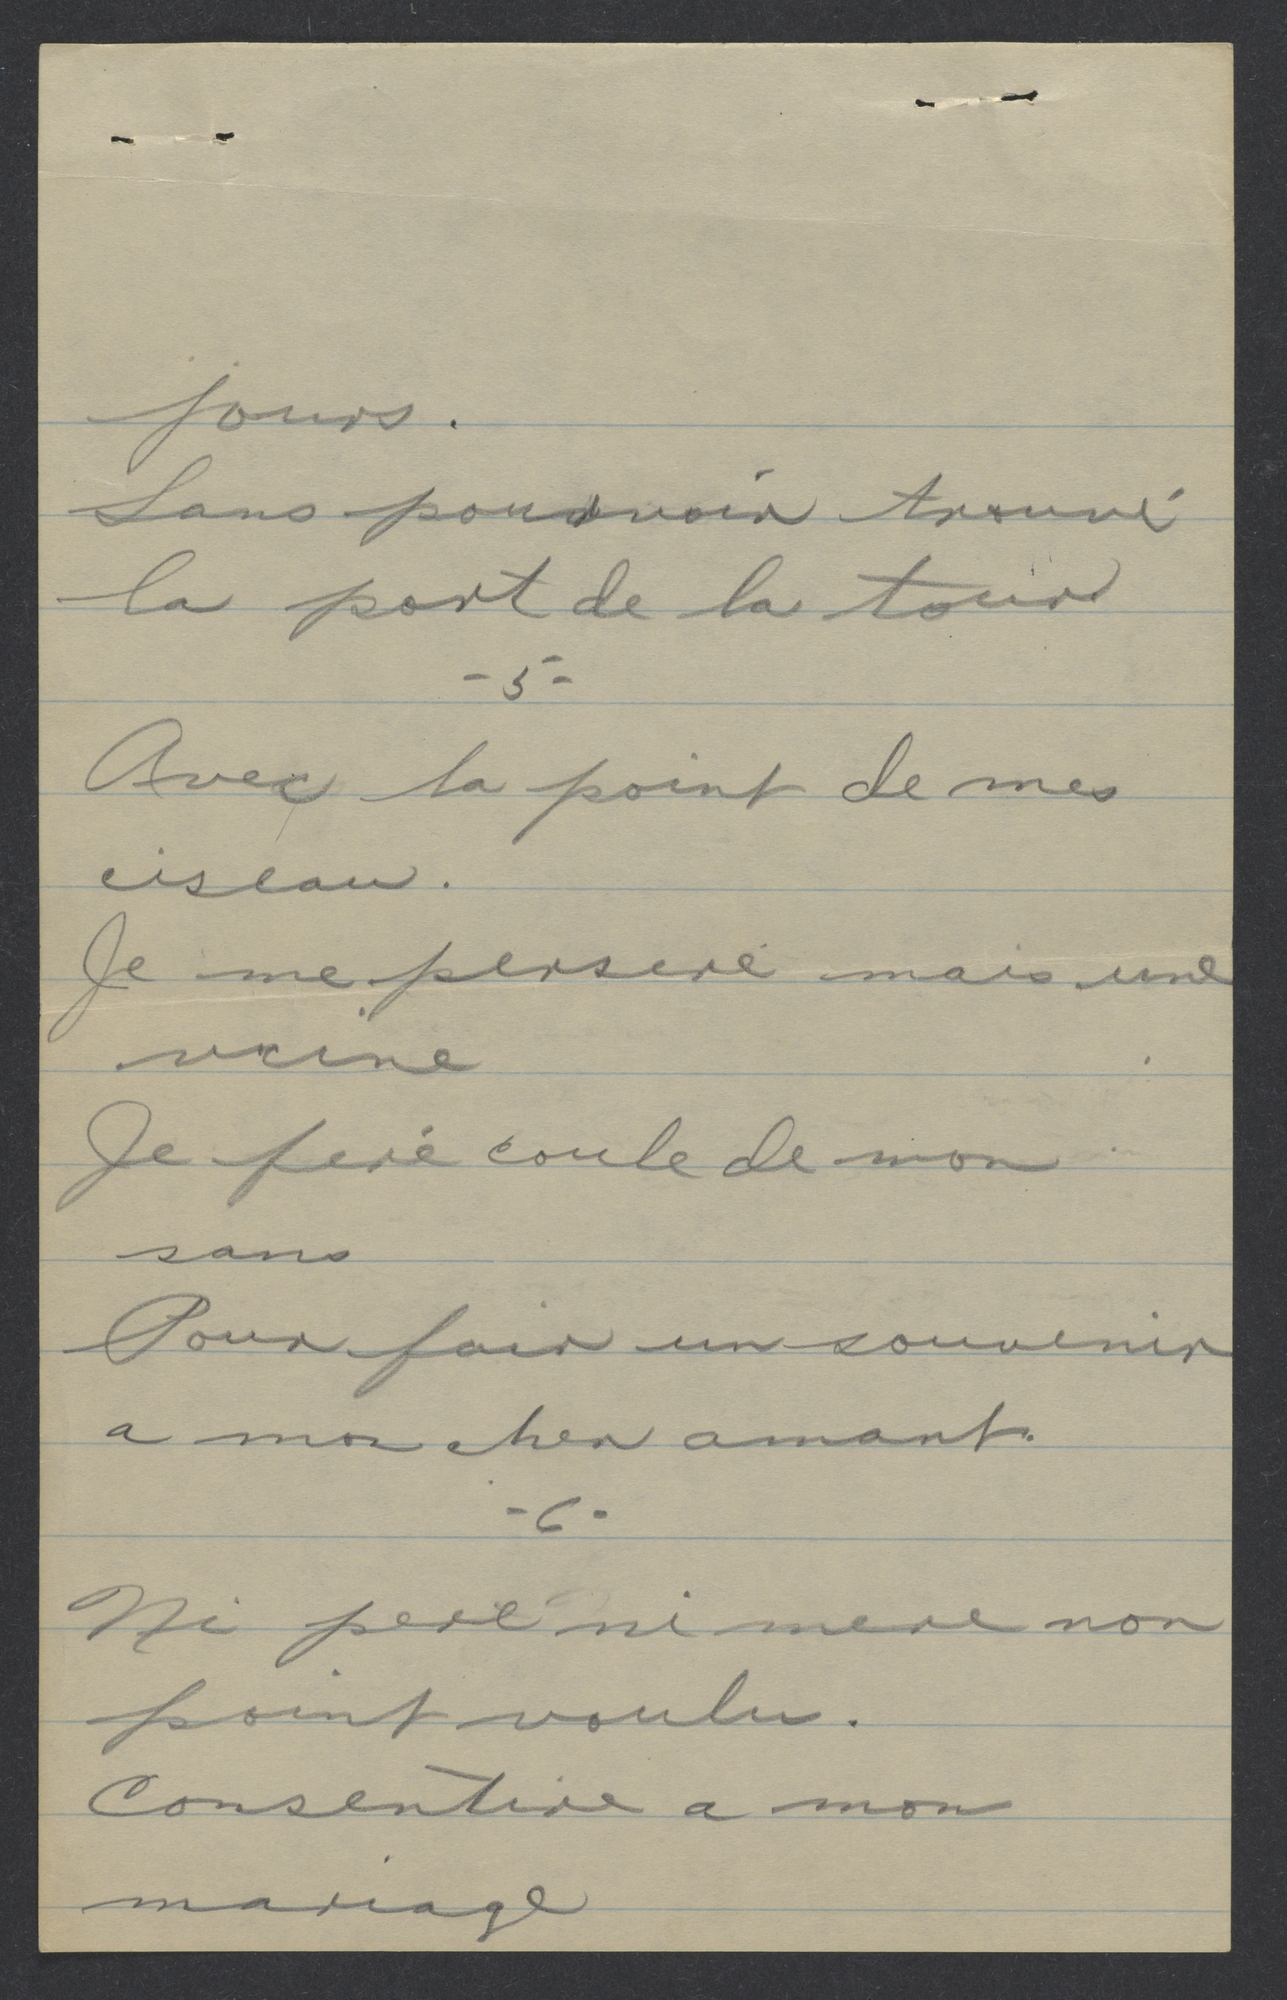 jours.
Sans pouvoir trouvé
la port de la tour
-5-
Avec la point de mes
ciseau.
Je me perseré mais une
veine
Je feré coule de mon
sans
Pour fair un souvenir
a mon cher amant.
-6-
Ni peré ni mere non
point voulu.
Consentire a mon
mariage